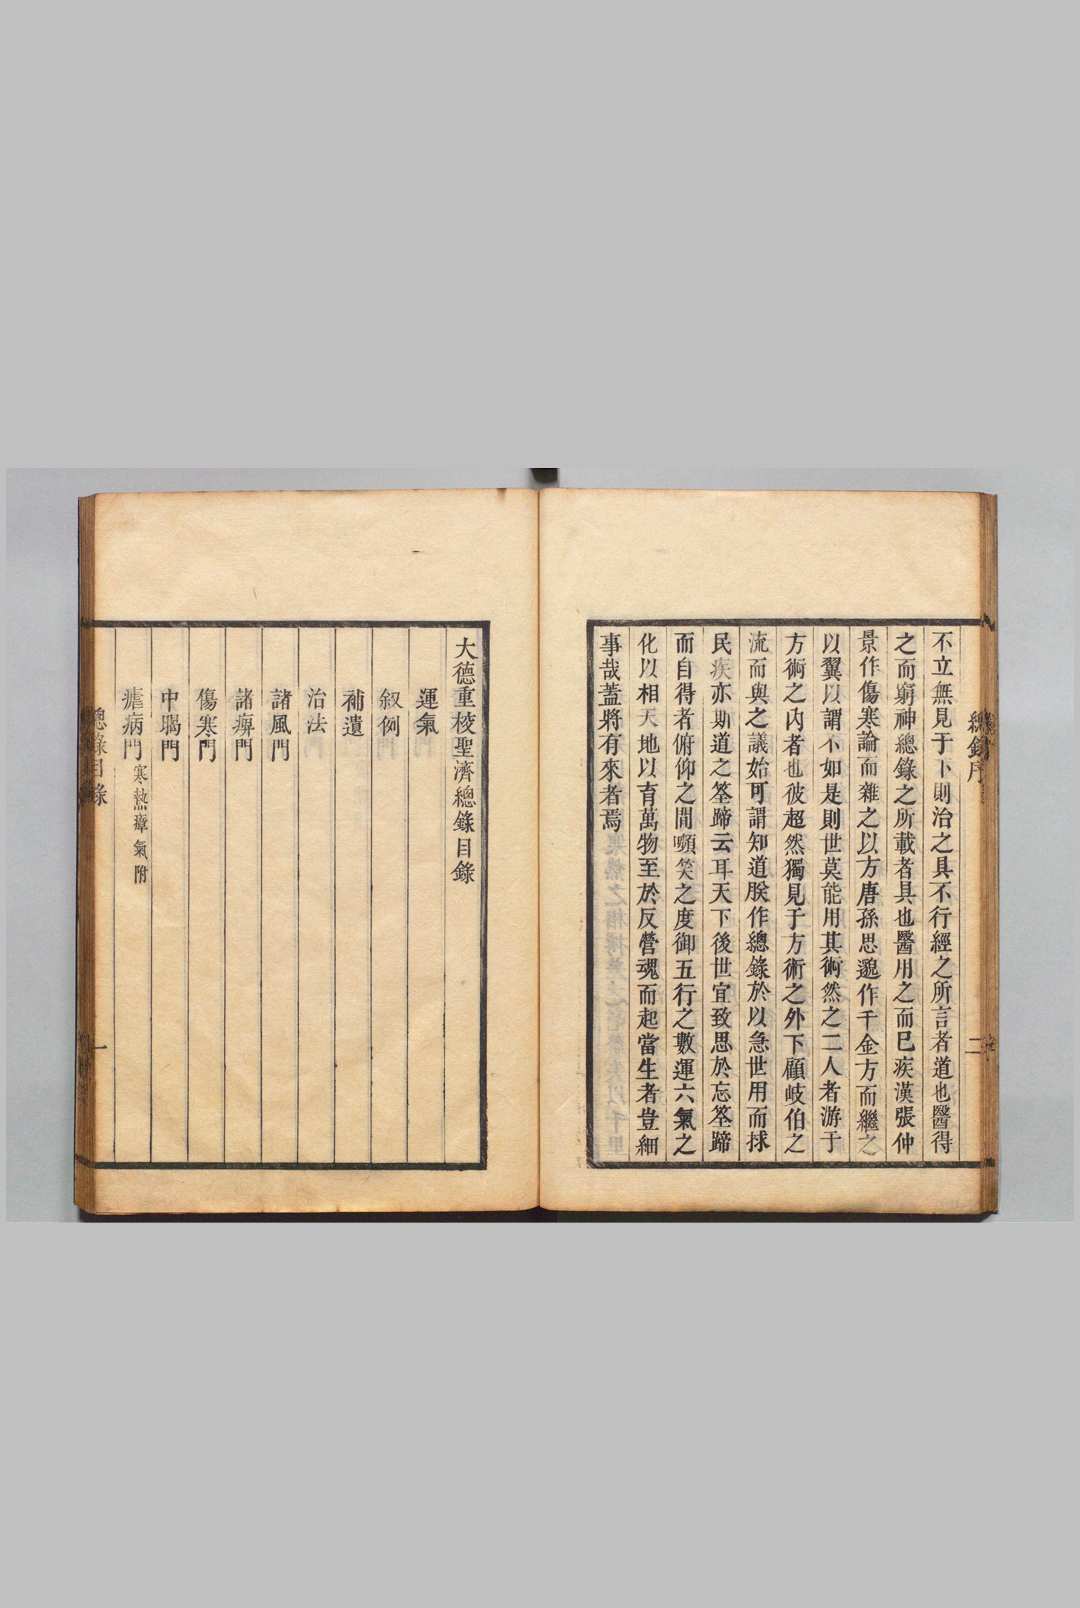 總錄序
二
不立無見于下則治之具不行經之所言者道也醫得
之而窮神總錄之所載者具也醫用之而已疾漢張仲
景作傷寒論而雜之以方唐孫思邈作千金方而繼之
以翼以謂不如是則世莫能用其術然之二人者游于
方術之内者也彼超然獨見于方術之外下顧岐伯之
流而與之議始可謂知道朕作總錄於以急世用而拯
民疾亦斯道之筌蹄云耳天下後世宜致思於忘筌蹄
而自得者俯仰之間嚬笑之度御五行之數運六氣之
化以相天地以育萬物至於反營魂而起當生者豈細
事哉蓋將有來者焉
大德重校聖濟總錄目錄
運氣
叙例
補遺
治法
諸風門
諸痹門
傷寒門
中暍門
瘧病門寒熱瘴氣附
總錄目錄
一